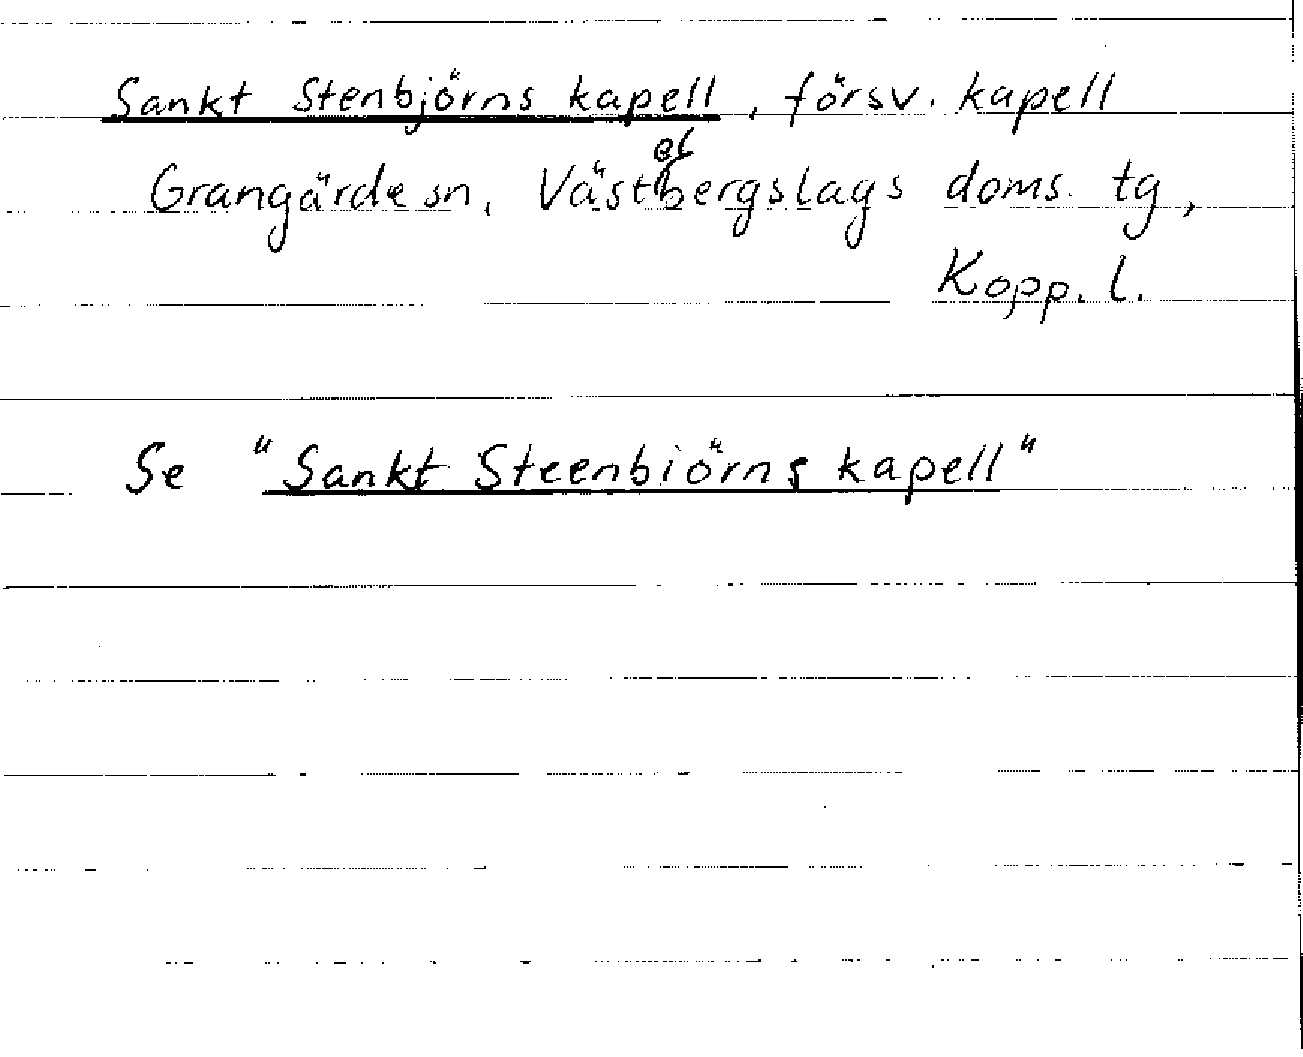 Sankt Stenbjörns kapell, försv. kapell
Grangärde sn, Västerbergslags doms. tg,
Kopp. l.
Se "Sankt Steenbiörns kapell"